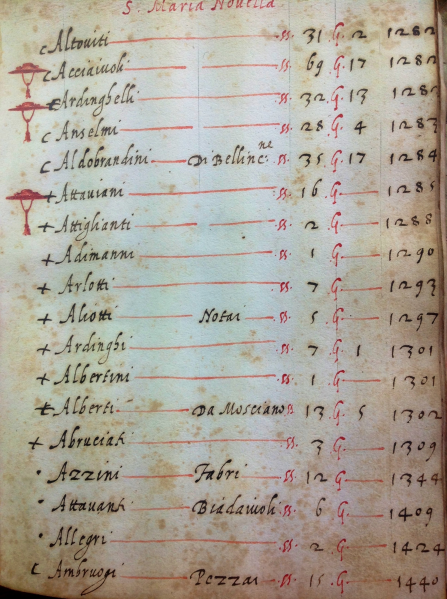 S. Maria Novella
c Altoviti SS. 31 G. 2 1282
c Acciaivoli SS. 69 G. 17 1282
Ardinghelli SS. 32 G. 13 1282
c Anselmi SS. 28 G. 4 1283
c Aldobrandini Di Bellinc.ne SS. 35 G. 17 1284
+ Attaviani SS. 16 G. 1285
+ Attiglianti SS. 2 G. 1288
+ Adimanni SS. 1 G. 1290
+ Arlotti SS. 7 G. 1293
+ Aliotti Notai SS. 5 G. 1297
+ Ardinghi SS. 7 G. 1 1301
+ Albertini SS. 1 G. 1301
Alberti Da Mosciano 13 G. 5 1302
+ Abruciati SS. 3 G. 1309
· Azzini Fabri SS. 12 G. 1344
· Attavanti Biadaivoli SS. 6 G. 1409
· Allegri SS. 2 G. 1424
c Ambruogi Pezzai SS. 15 G. 1440